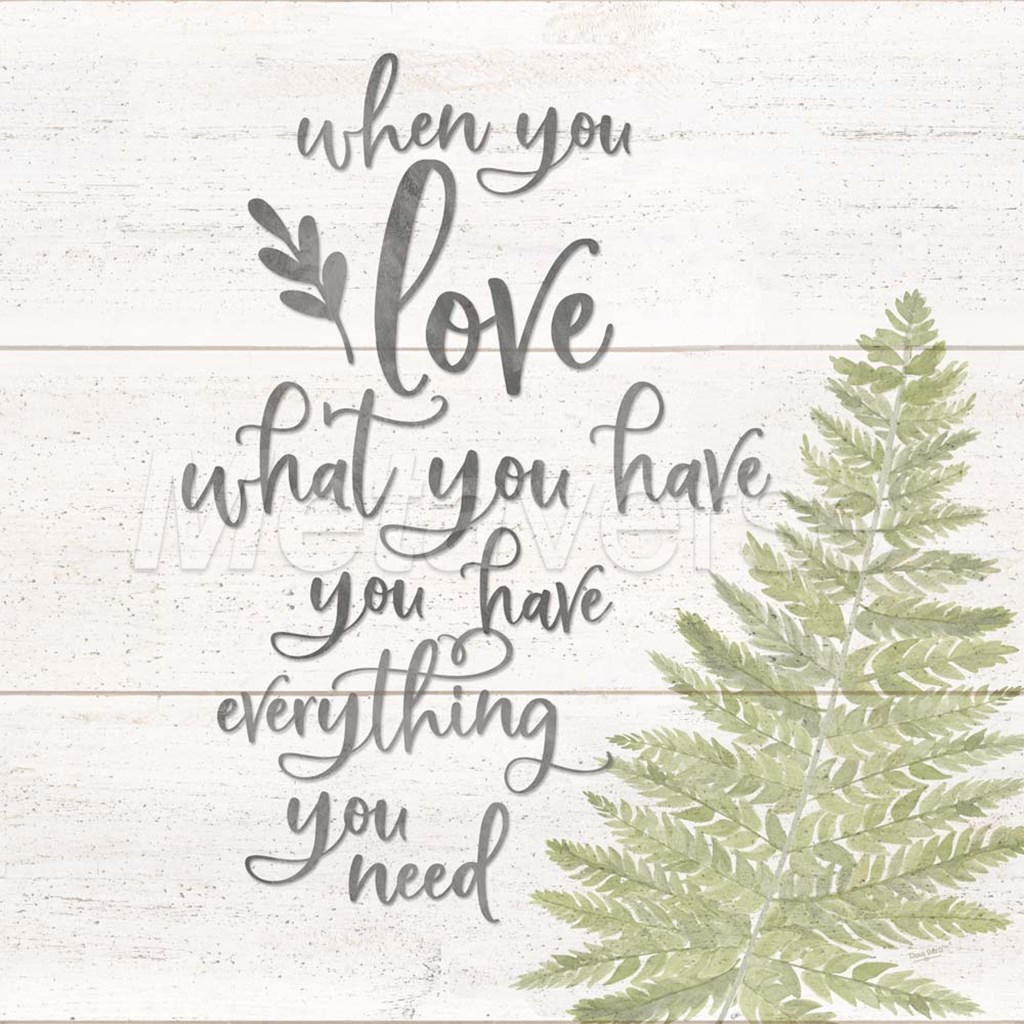 when you
love
what you have
you have
everything
you
need